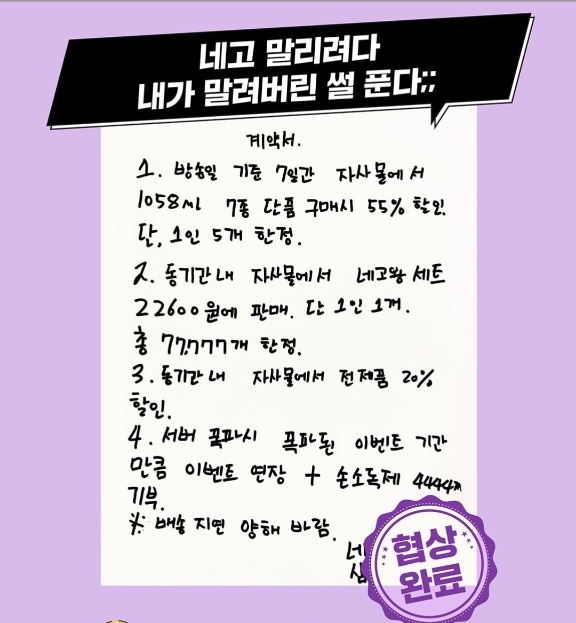 네고 말리려다
내가 말려버린 썰 푼다;;
계약서.
1. 방송일 기준 7일간 자사몰에서
1058ml 7종 단품 구매시 55% 할인.
단, 1인 5개 한정.
2. 동기간 내 자사몰에서 네고왕 세트
22600원에 판매. 단 1인 1개.
총 77,777개 한정.
3. 동기간 내 자사몰에서 전제품 20%
할인.
4. 서버 폭파시 폭파된 이벤트 기간
만큼 이벤트 연장 + 손소독제
기부.
※ 배송 지연 양해 바람.
협상
완료